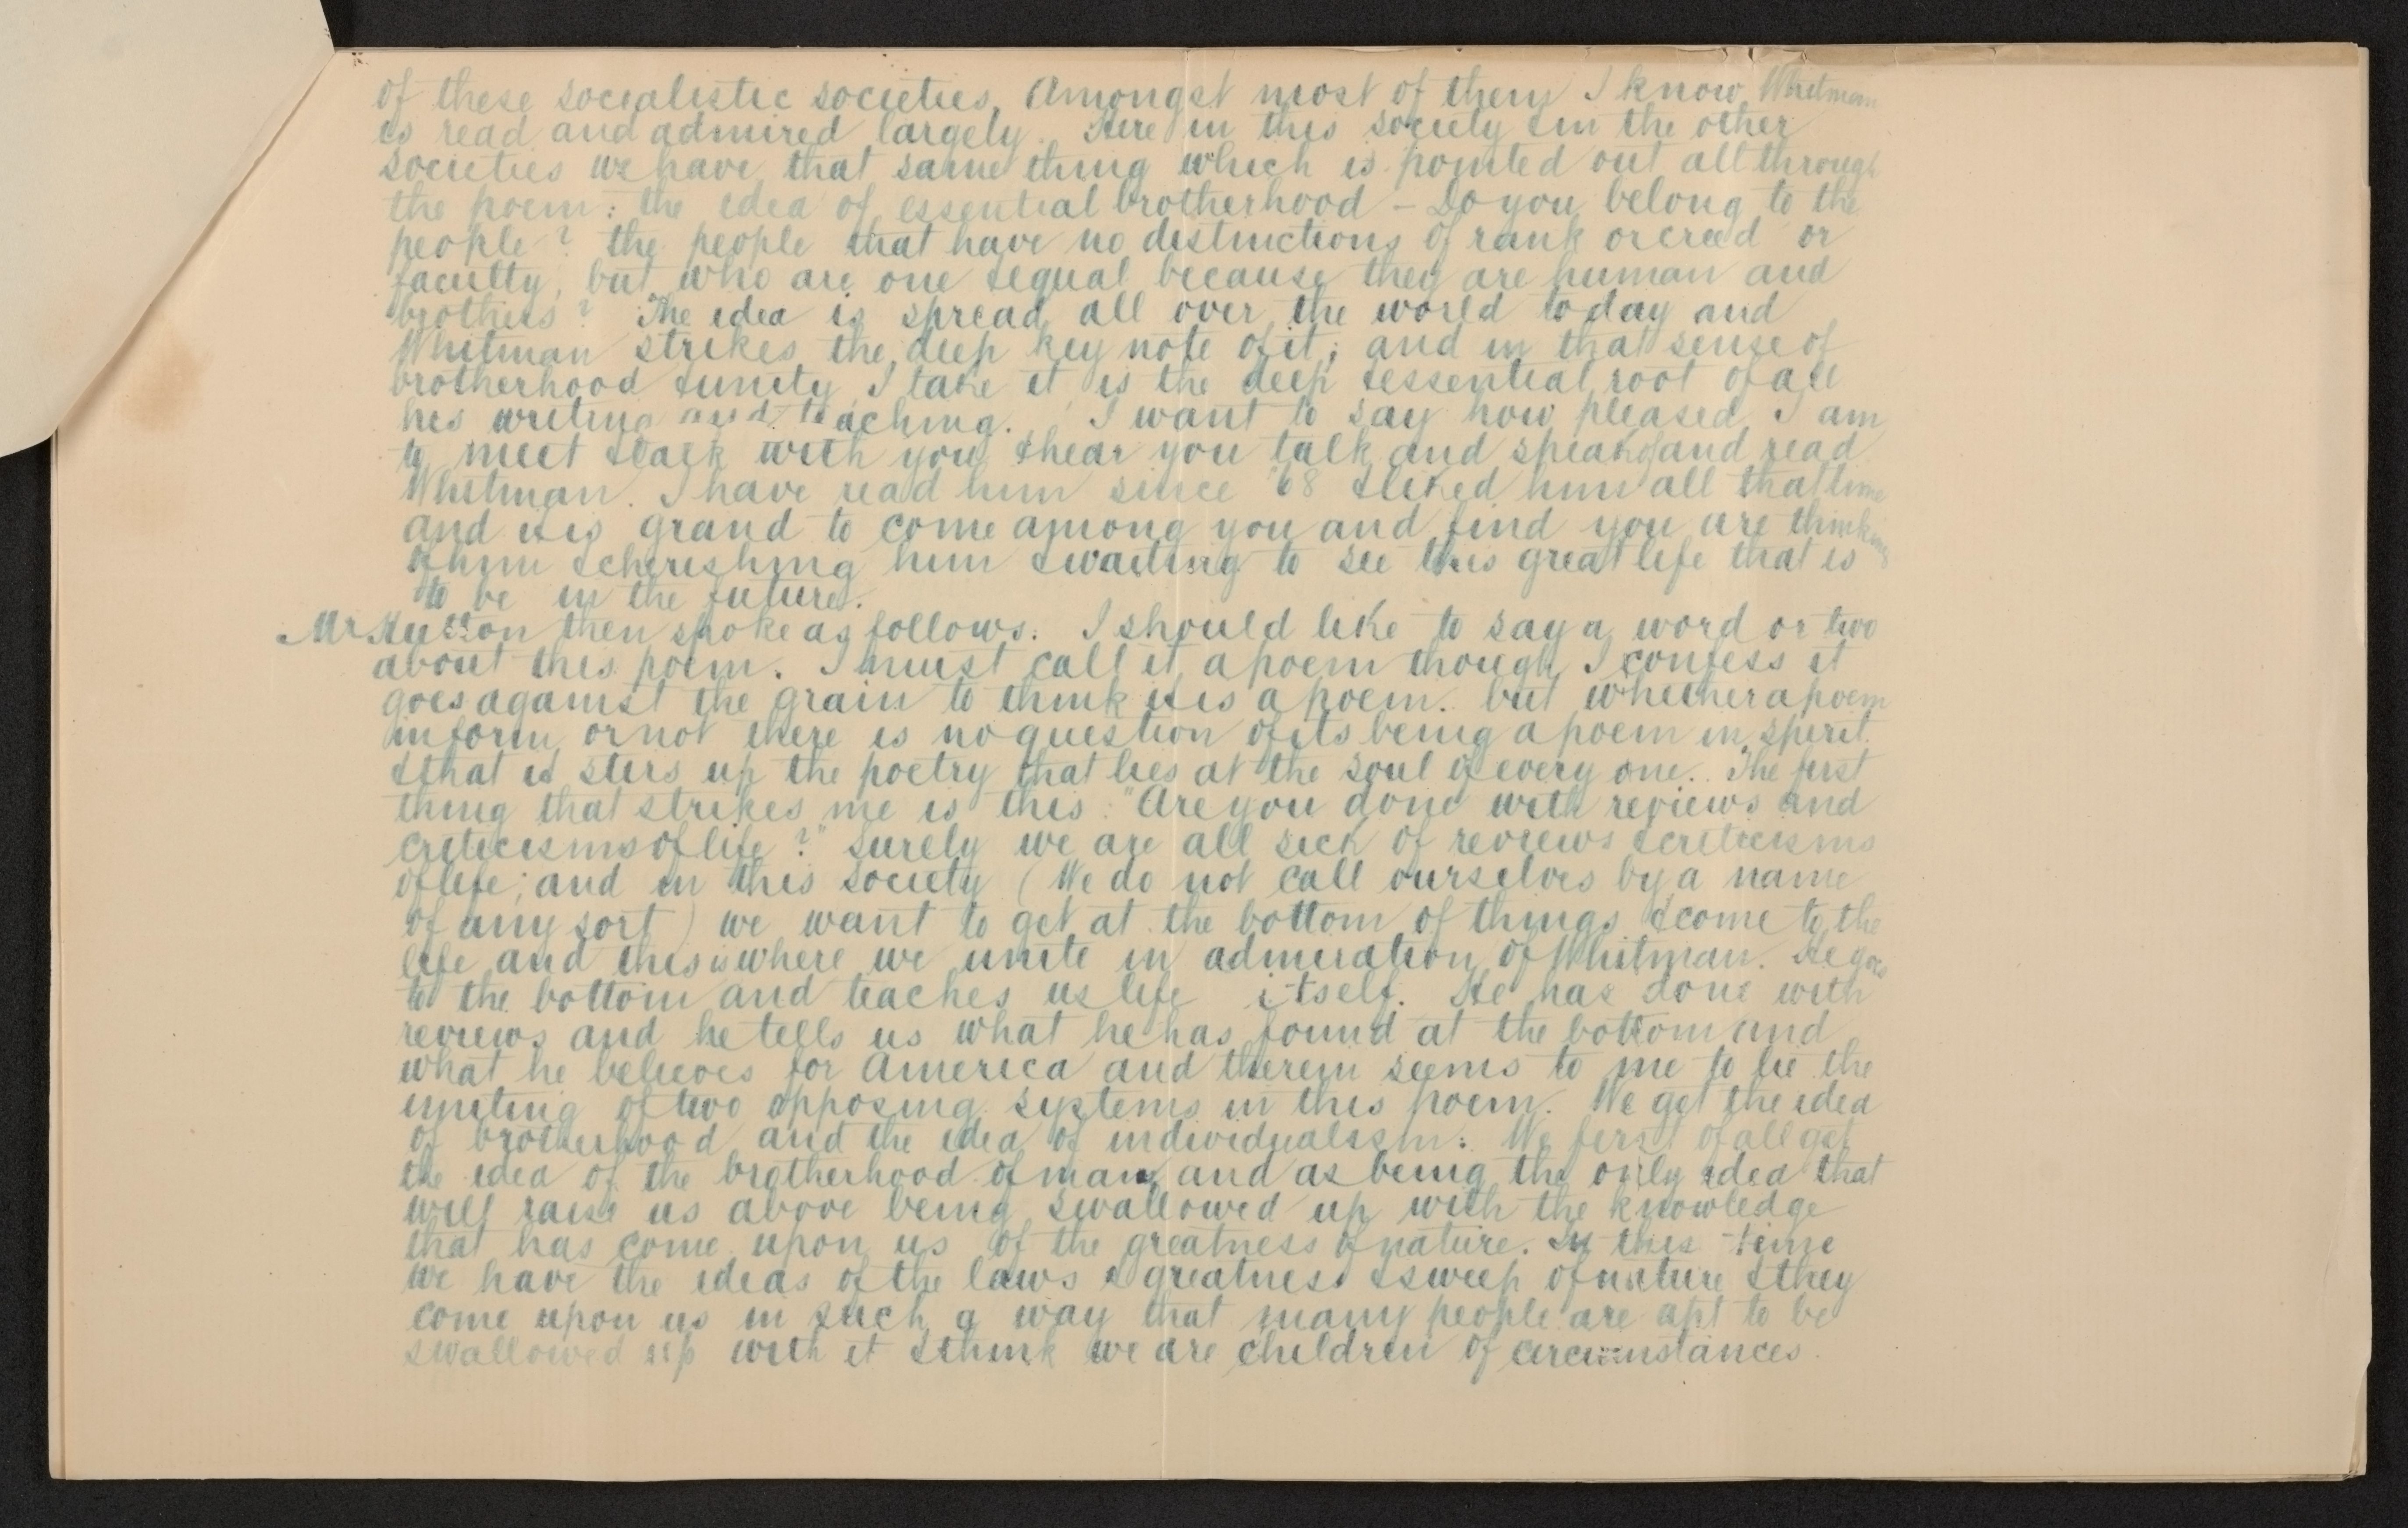 of these socialistic societies. Amongst most of them I know Whitman
is read and admired largely. Here in this society & in the other
societies we have that same thing which is pointed out all through
the poem: the idea of essential brotherhood – Do you belong to the
people? the people that have no distinctions of rank or creed or
faculty, but who are one & equal because they are human and
brothers? The idea is spread all over the world today and
Whitman strikes the deep key note of it; and in that sense of
brotherhood & unity I take it is the deep & essential root of all
his writing and teaching. I want to say how pleased I am
to meet & talk with you & hear you talk and speak of and read
Whitman. I have read him since '68 & liked him all that time
and it is grand to come among you and find you are thinking
of him & cherishing him & waiting to see this great life that is
to be in the future.
Mr Hutton then spoke as follows. I should like to say a word or two
about this poem. I must call it a poem though I confess it
goes against the grain to think it is a poem. but whether a poem
in form or not there is no question of its being a poem in spirit
& that it stirs up the poetry that lies at the soul of every one. The first
thing that strikes me is this: "Are you done with reviews and
criticisms of life?" Surely we are all sick of reviews & criticisms
of life; and in this society (We do not call ourselves by a name
of any sort) we want to get at the bottom of things & come to the
life and this is where we unite in admiration of Whitman. He goes
to the bottom and teaches us life itself. He has done with
reviews and he tells us what he has found at the bottom and
what he believes for America and therein seems to me to lie the
uniting of two opposing systems in this poem. We get the idea
of brotherhood and the idea of individualism: We first of all get
the idea of the brotherhood of man, and as being the only idea that
will raise us above being swallowed up with the knowledge
that has come upon us of the greatness of nature. In this time
we have the ideas of the laws & greatness & sweep of nature & they
come upon us in such a way that many people are apt to be
swallowed up with it & think we are children of circumstances.